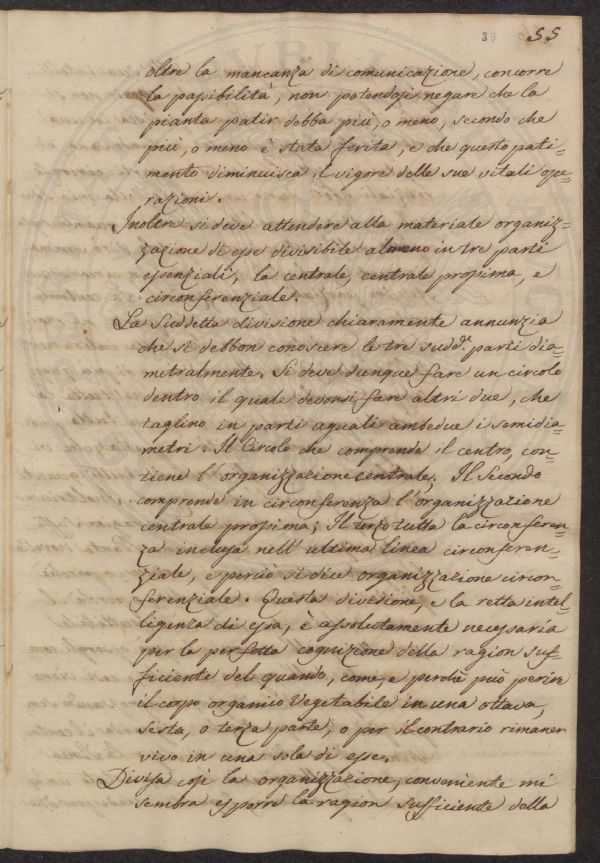 39 55
oltre la mancanza di comunicazione, concorre
la passibilità, non potendosi negare che la
pianta patir debba più, o meno, secondo che
più, o meno è stata ferita, e che questo pati=
mento diminuisca il vigore delle sue vitali ope=
razioni.
Inoltre si deve attendere alla materiale organiz=
zazione di esse divisibile almeno in tre parti
essenziali, la centrale, centrale prossima, e
circonferenziale.
La Suddetta divisione chiaramente annunzia
che si debbon conoscere le tre sudd.e parti dia=
metralmente. Si deve dunque fare un circolo
dentro il quale devonsi fare altri due, che
taglino in parti aguali ambedue i semidia=
metri. Il Circolo che comprende il centro, con=
tiene l'organizzazione centrale. Il Secondo
comprende in circonferenza l'organizzazione
centrale prossima; Il terzo tutta la circonferen=
za inclusa nell'ultima linea circonferen=
ziale, e perciò si dice organizzazione circon=
ferenziale. Questa divisione, e la retta intel=
ligenza di essa, è assolutamente necessaria
per la perfetta cognizione della ragion suf=
ficiente del quando, come, e perchè può perire
il corpo organico Vegetabile in una ottava,
sesta, o terza parte, o per il contrario rimaner
vivo in una sola di esse.
Divisa così la organizzazione, conveniente mi
sembra esporre la ragion sufficiente della